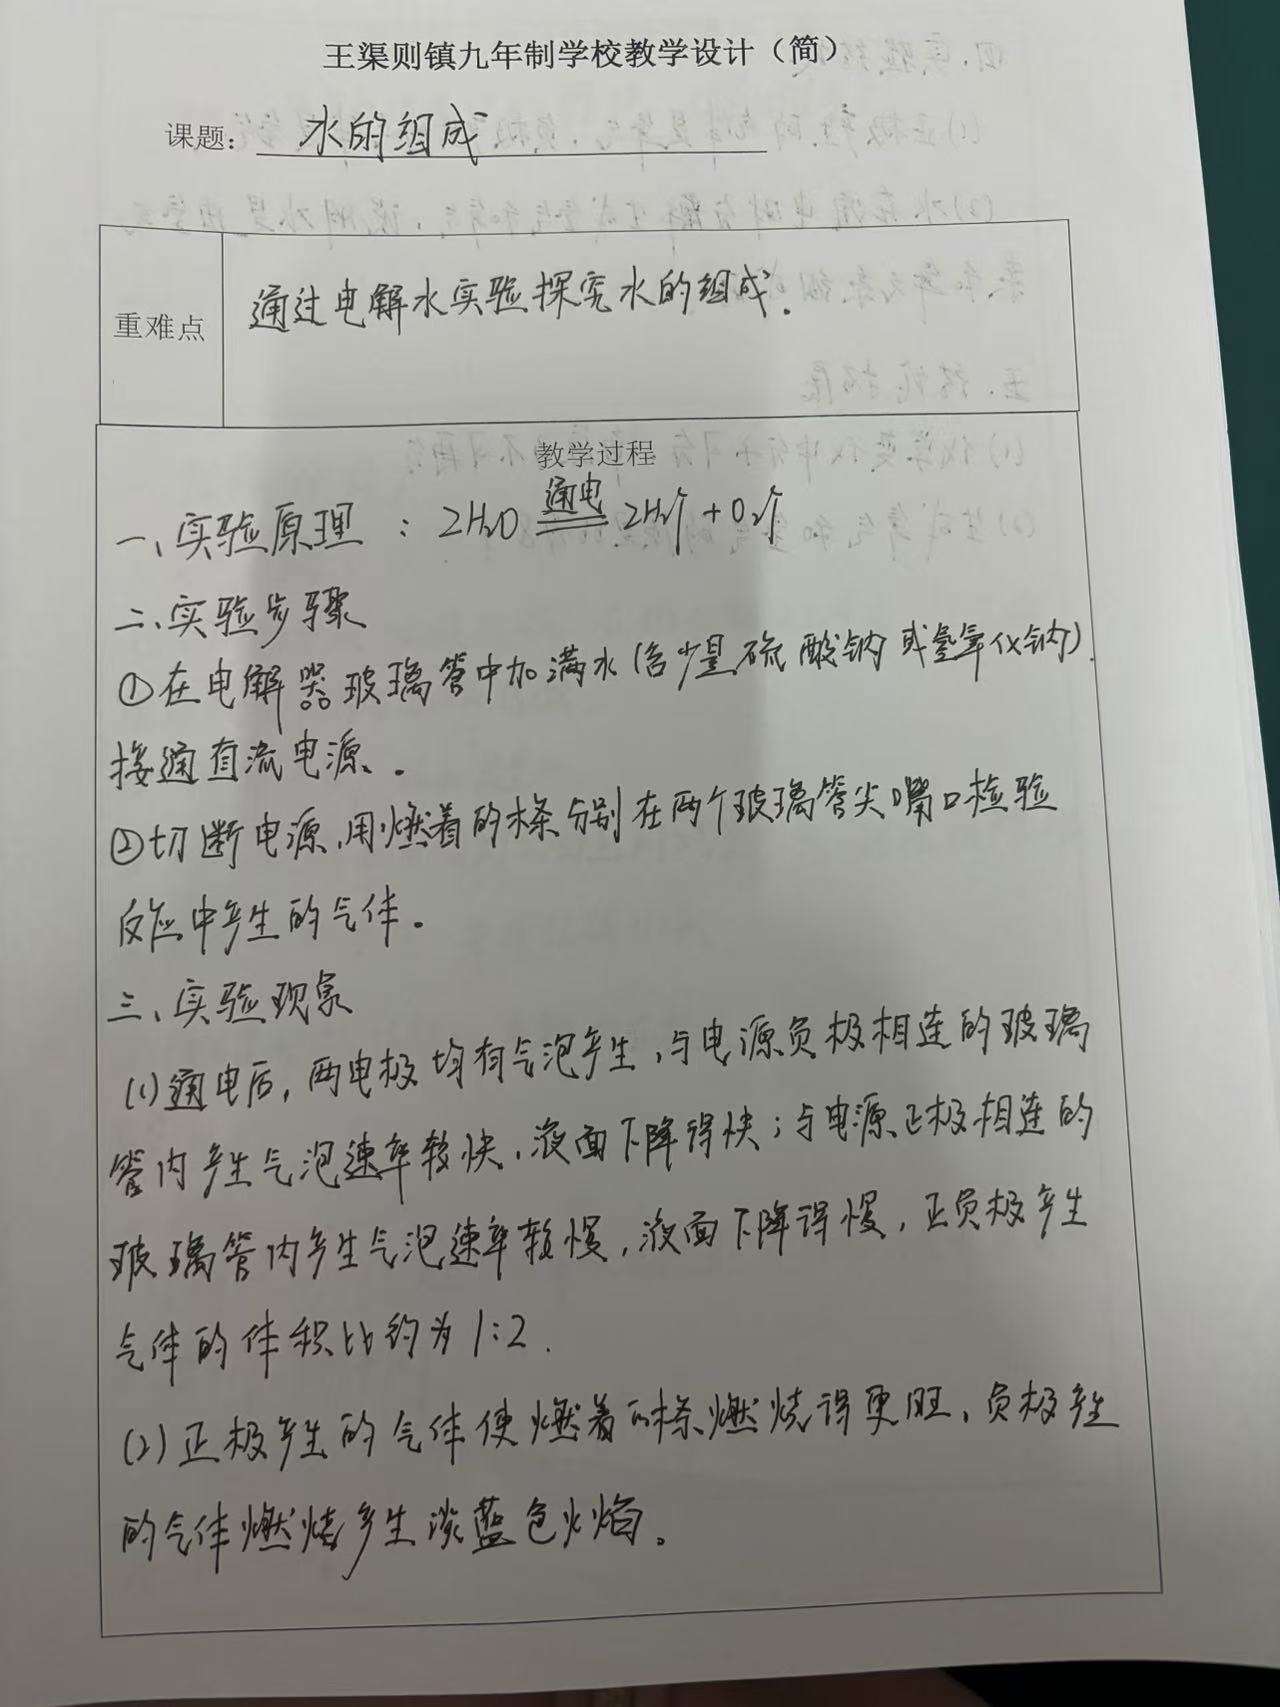 王渠则镇九年制学校教学设计（简）
课题： 水的组成
重难点
通过电解水实验探究水的组成.
教学过程
一、实验原理 : 2H₂O 通电══ 2H₂↑ + O₂↑
二、实验步骤
①在电解器玻璃管中加满水(含少量硫酸钠或氢氧化钠).
接通直流电源.
②切断电源,用燃着的木条分别在两个玻璃管尖嘴口检验
反应中产生的气体。
三、实验现象
(1)通电后,两电极均有气泡产生,与电源负极相连的玻璃
管内产生气泡速率较快,液面下降得快;与电源正极相连的
玻璃管内产生气泡速率较慢,液面下降得慢,正负极产生
气体的体积比约为1:2.
(2)正极产生的气体使燃着的木条燃烧得更旺、负极产生
的气体燃烧产生淡蓝色火焰。